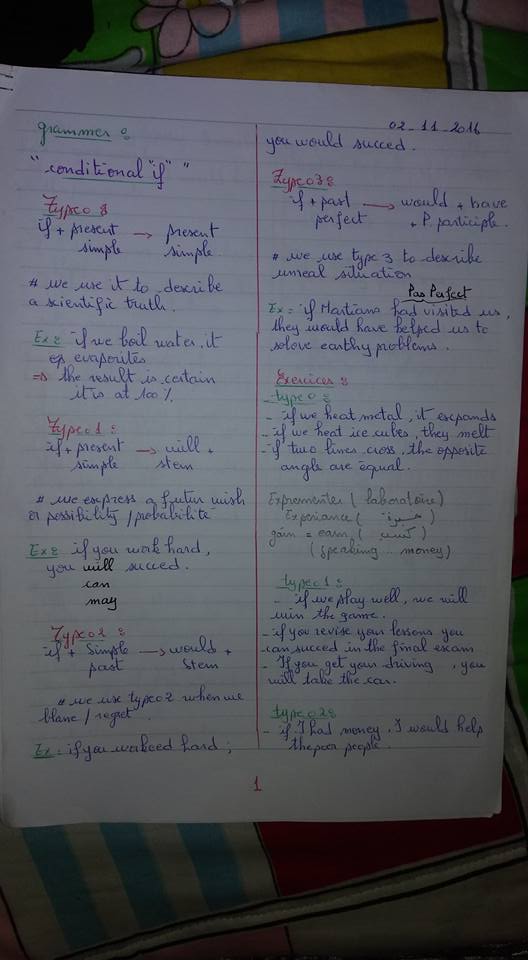 grammer :
"conditional "if" "
Type 0 :
if + present → present
simple simple
# we use it to describe
a scientific truth.
Ex : if we boil water, it
evaporites
⇒ the result is certain
it is at 100 %
Type 1 :
if + present → will +
simple stem
# we express a futur wish
or possibility / probabilité
Ex : if you work hard,
you will succed.
can
may
Type 2 :
if + Simple → would +
past Stem
# we use type 2 when we
blane / regret
Ex : if you worked hard ;
02-11-2016
you would succed.
Type 03 :
if + past → would + have
perfect + P. participle.
# we use type 3 to describe
unreal situation
Pas Perfect
Ex : if Martians had visited us,
they would have helped us to
solove earthy problems.
Exercices :
type 0 :
- if we heat metal, it expands
- if we heat ice cubes, they melt
- if two lines cross, the opposite
angle are equal.
Exprementer ( laboratoire)
Experiance ( خبرة )
gain = earn ( كسب )
(speaking ... money)
type 1 :
- if we play well, we will
win the game.
- if you revise your lessons you
can succed in the final exam
- If you get your driving , you
will take the car.
type 02 :
- if I had money, I would help
the poor people.
1